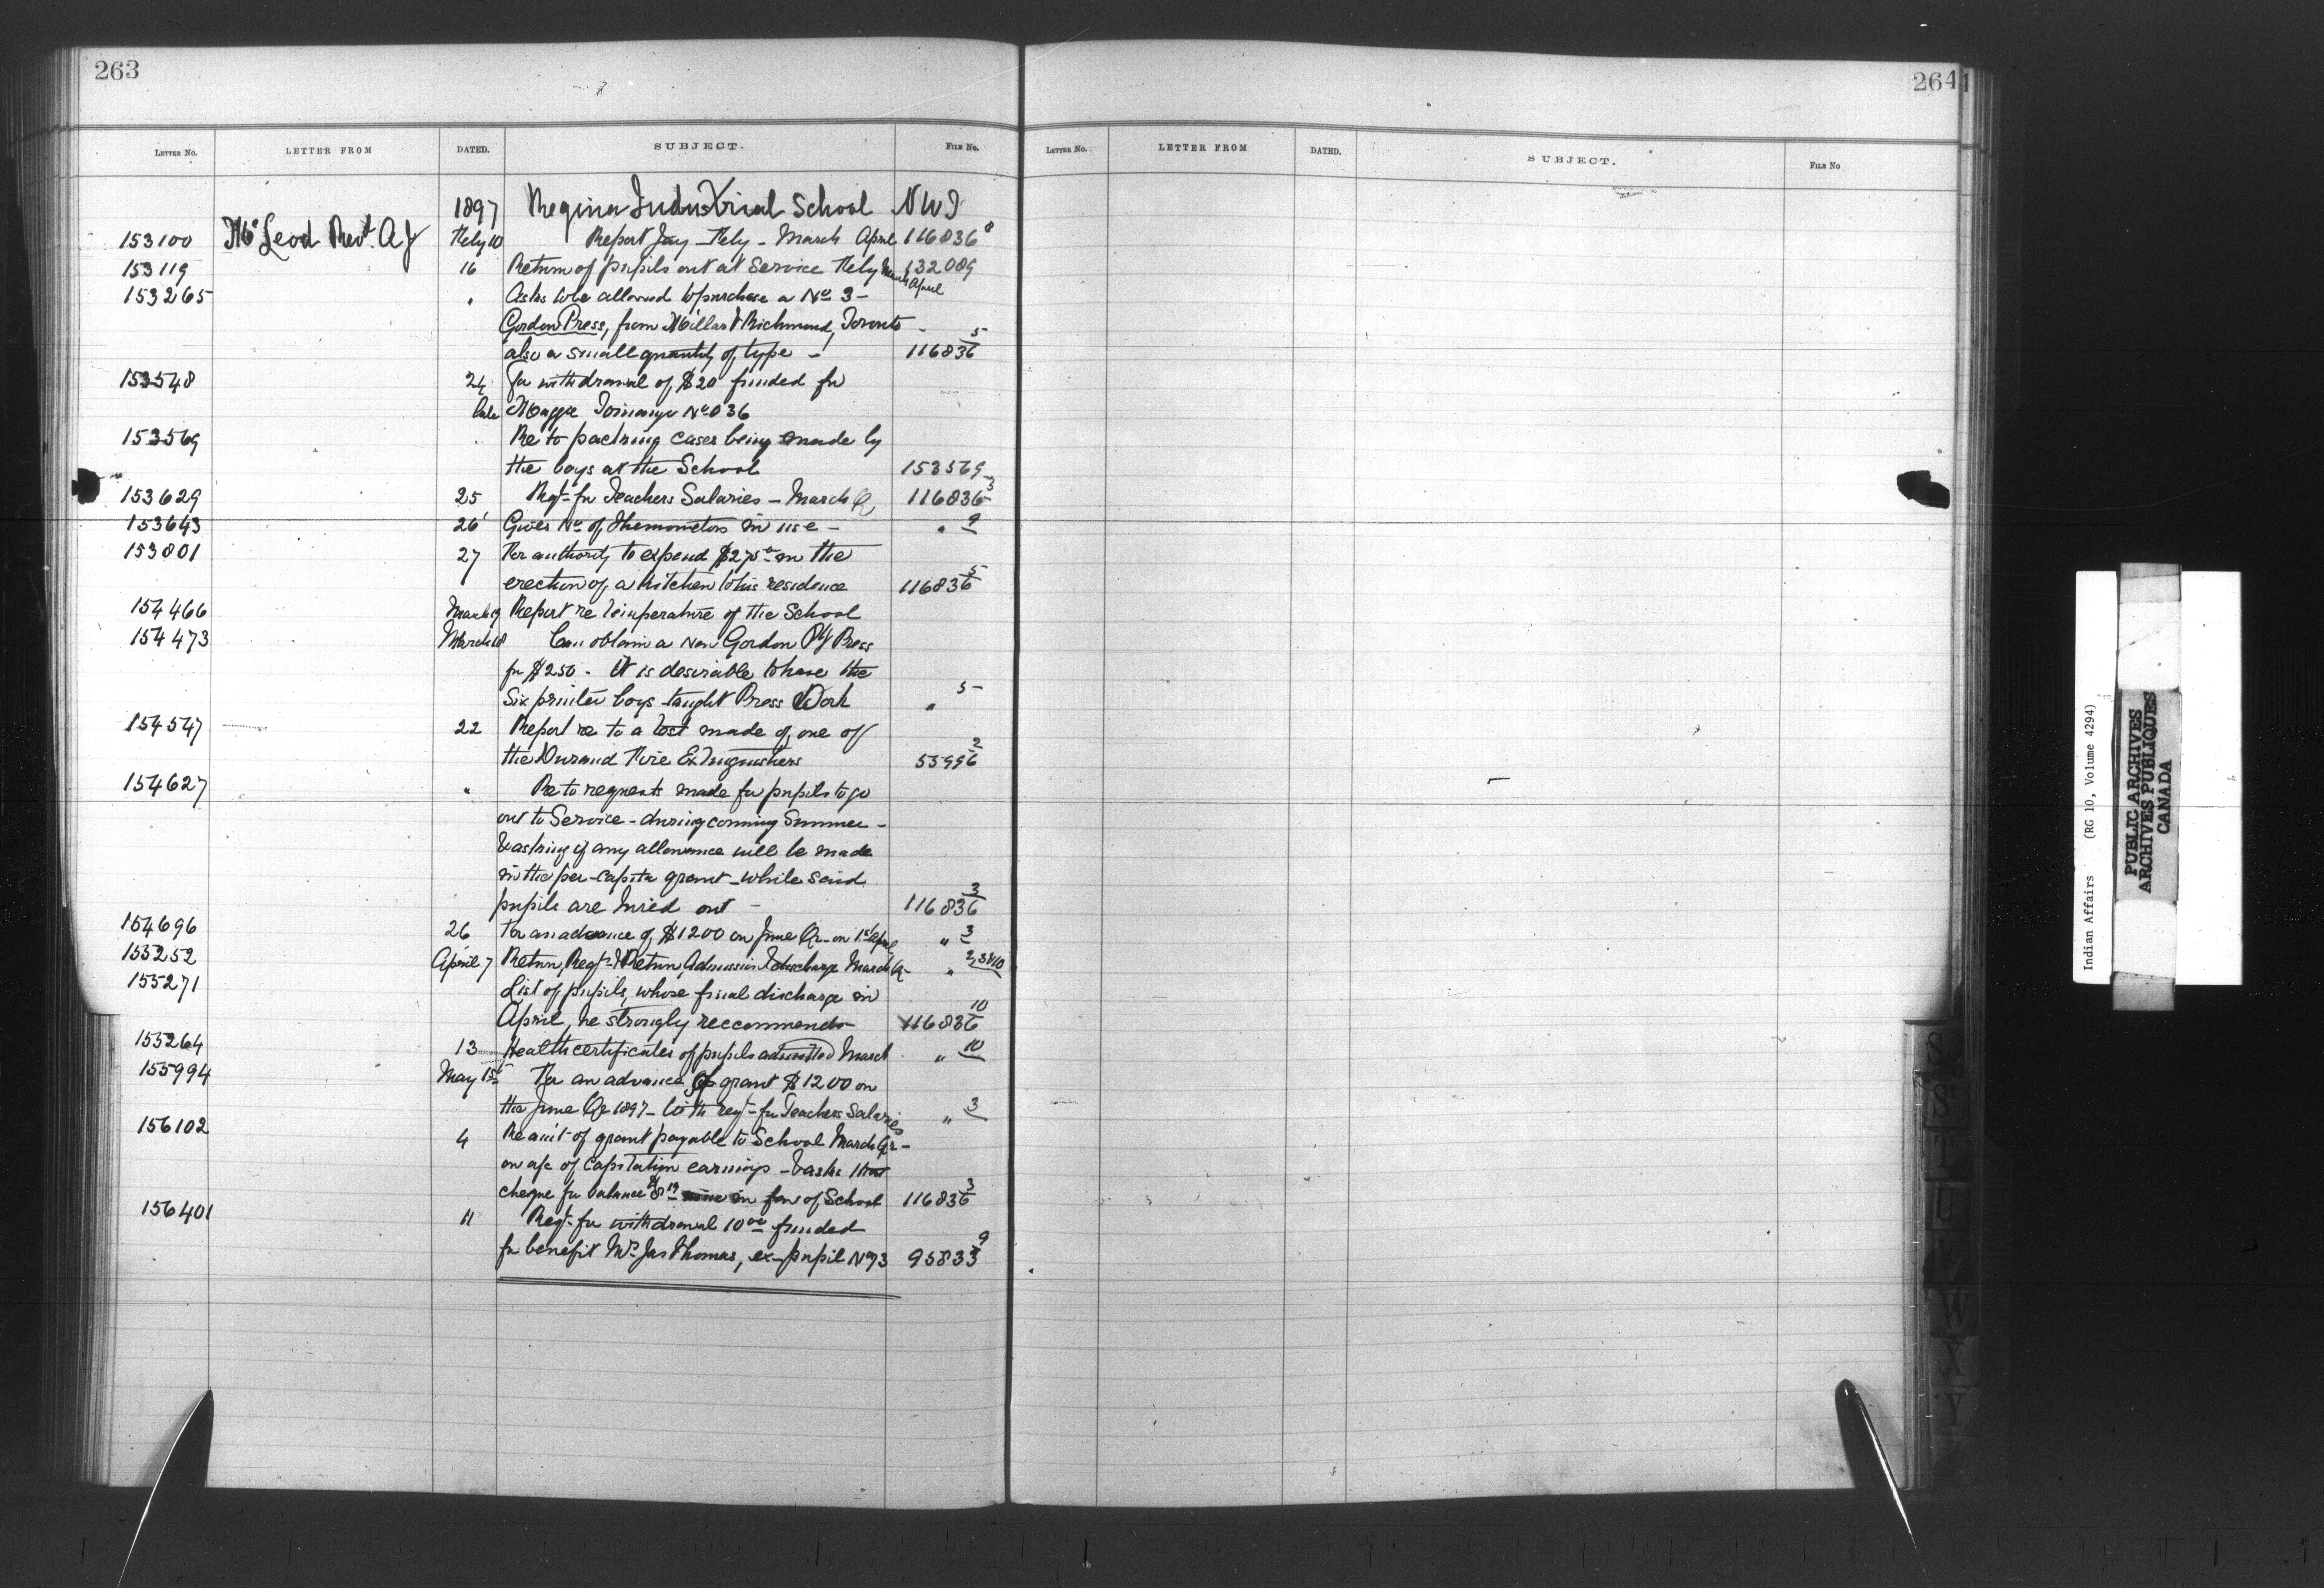 263
LETTER NO. LETTER FROM DATED. SUBJECT. FILE NO.
1897 Regina Industrial School NWT
153100 McLeod Revd. A J Feby 10 Report Jany - Feby - March April 116836 8
153119 16 Return of pupils out at Service Feby March April 132089
153265 " Asks to be allowed to purchase a No 3 -
Gordon Press, from Millar & Richmond, Toronto -
also a small quantity of type - 116836 5
153548 24 for withdrawal of $20 funded for
No 036
153569 " Re to packing cases being made by
the boys at the School 153569
153629 25 Reqt- for Teachers Salaries - March Q 116836 3
153643 26 Gives No of Thermometors in use - " 9
153801 27 For authority to expend $275 on the
erection of a kitchen to his residence 116836 5
154466 March 19 Report re temperature of the School
154473 March 18 Can obtain a New Gordon Press
for $250 - It is desirable to have the
Six printer boys taught Press Work " 5
154547 22 Report re to a test made of one of
the Durand Fire Extinguishers 55996 2
154627 " Re to requests made for pupils to go
out to Service - during coming Summer -
& asking if any allowance will be made
in the per-capita grant - while said
pupils are hired out - 116836 3
154696 26 For an advance of $1200 on June Qr- on 1st April " 3
155252 April 7 Return, Reqt & Return, Admission & discharge March Qr- " 2,3&10
155271 List of pupils, whose final discharge in
April, he strongly reccommends 116836 10
155264 13 Health certificates of pupils admitted March " 10
155994 May 1st For an advance of grant $1200 on
the June Qr 1897 - with reqt- for Teachers Salaries " 3
156102 4 Re amt of grant payable to School March Qr -
on a/c of Capitation earnings - & asks that
cheque for balance in fav of School 116836 3
156401 11 Reqt- for withdrawal 10 00 funded
for benefit Mrs Jas Thomas, ex-pupil No 93 95833 9
264
LETTER NO. LETTER FROM DATED. SUBJECT. FILE NO
S
S
T
U
V
W
X
Y
Indian Affairs (RG 10, Volume 4294)
PUBLIC ARCHIVES
ARCHIVES PUBLIQUES
CANADA